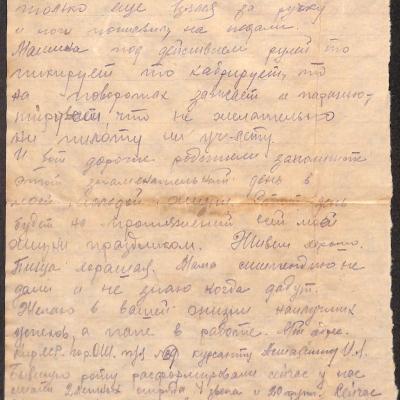 только еще взялся за ручку
и ноги поставил на педали.
Машина под действием рулей то
пикирует то кабрирует, то
на поворотах зависает и парашю-
тирует, что не желательно
ни пилоту ни уч-лету.
И вот дорогие родители запомните
этот знаменательный день в
моей молодой жизни. Этот день
будет на протяжении всей моей
жизни праздником. Живем хорошо.
Пища хорошая. Мама стипендию не
дали и не знаю когда дадут.
Желаю в вашей жизни наилучших
успехов, а папе в работе.
курсанту
Бывшую роту расформировали сейчас у нас
звена и Сейчас